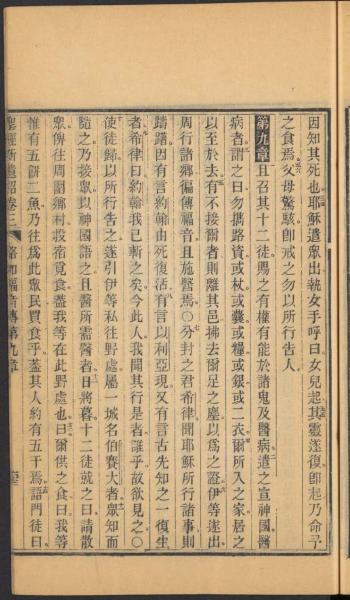 因知其死也耶穌遣眾出執女手呼曰女兒起其靈遂復即起乃命予
之食焉父母驚駭即戒之勿以所行告人
第九章且召其十二徒賜之有權有能於諸鬼及醫病遣之宣神國醫
病者謂之曰勿攜路資或杖或囊或糧或銀或二衣爾所入之家居之
以至於去有不接爾者則離其邑拂去爾足之塵以為之證伊等遂出
周行諸鄉徧傳福音且施醫焉○分封之君希律聞耶穌所行諸事則
躊躇因有言約翰由死復活有言以利亞現又有言古先知之一復生
者希律曰約翰我已斬之矣今此人我聞其行是者誰乎故欲見之○
使徒歸以所行告之遂引伊等私往野處屬一城名伯賽大者眾知而
隨之乃接眾以神國語之且醫所需醫者日將暮十二徒就之曰請散
眾俾往周圍鄉村投宿覓食蓋我等在此野處也曰爾供之食曰我等
惟有五餅二魚乃往為此眾民買食乎蓋其人約有五千焉語門徒曰
聖經新遺詔卷三 路加福音傳第九章